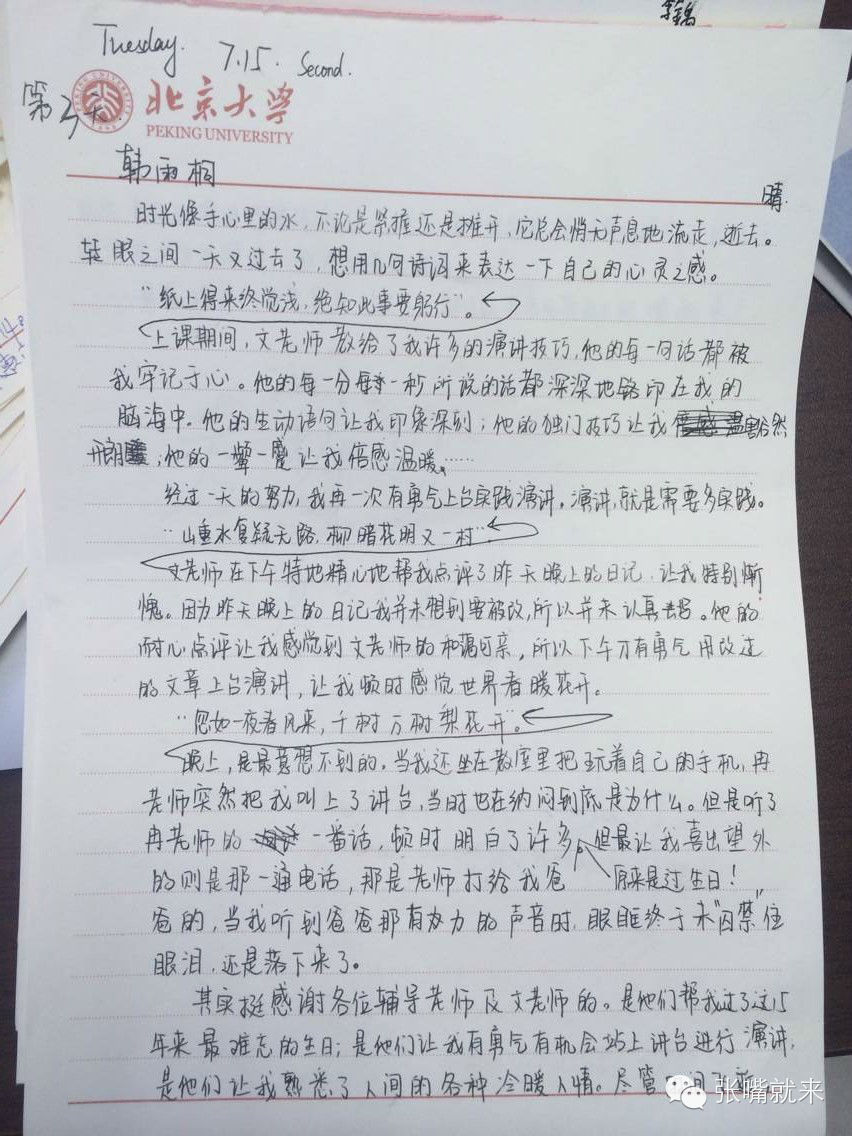 Tuesday. 7.15. Second.
第2天.
北京大学
PEKING UNIVERSITY
韩雨桐
晴.
时光像手心里的水，不论是紧握还是摊开，它总会悄无声息地流走，逝去。
转眼之间一天又过去了，想用几句诗词来表达一下自己的心灵之感。
“纸上得来终觉浅，绝知此事要躬行”。
上课期间，文老师教给了我许多的演讲技巧，他的每一句话都被
我牢记于心。他的每一分每一秒所说的话都深深地铭印在我的
脑海中。他的生动语句让我印象深刻；他的独门技巧让我豁然
开朗；他的一颦一蹙让我倍感温暖……
经过一天的努力，我再一次有勇气上台实践演讲。演讲，就是需要多实践。
“山重水复疑无路，柳暗花明又一村”
文老师在下午特地精心地帮我点评了昨天晚上的日记，让我特别惭
愧。因为昨天晚上的日记我并未想到要被改，所以并未认真去写。他的
耐心点评让我感觉到文老师的和蔼可亲，所以下午才有勇气用改过
的文章上台演讲，让我顿时感觉世界春暖花开。
“忽如一夜春风来，千树万树梨花开”。
晚上，是最意想不到的。当我还坐在教室里把玩着自己的手机，冉
老师突然把我叫上了讲台，当时也在纳闷到底是为什么。但是听了
冉老师的一番话，顿时明白了许多，但最让我喜出望外
的则是那一通电话，那是老师打给我爸 原来是过生日！
爸的，当我听到爸爸那有力的声音时，眼眶终于未“囚禁”住
眼泪，还是落下来了。
其实挺感谢各位辅导老师及文老师的。是他们帮我过了这15
年来最难忘的生日；是他们让我有勇气有机会站上讲台进行演讲，
是他们让我熟悉了人间的各种冷暖人情。尽管
张嘴就来